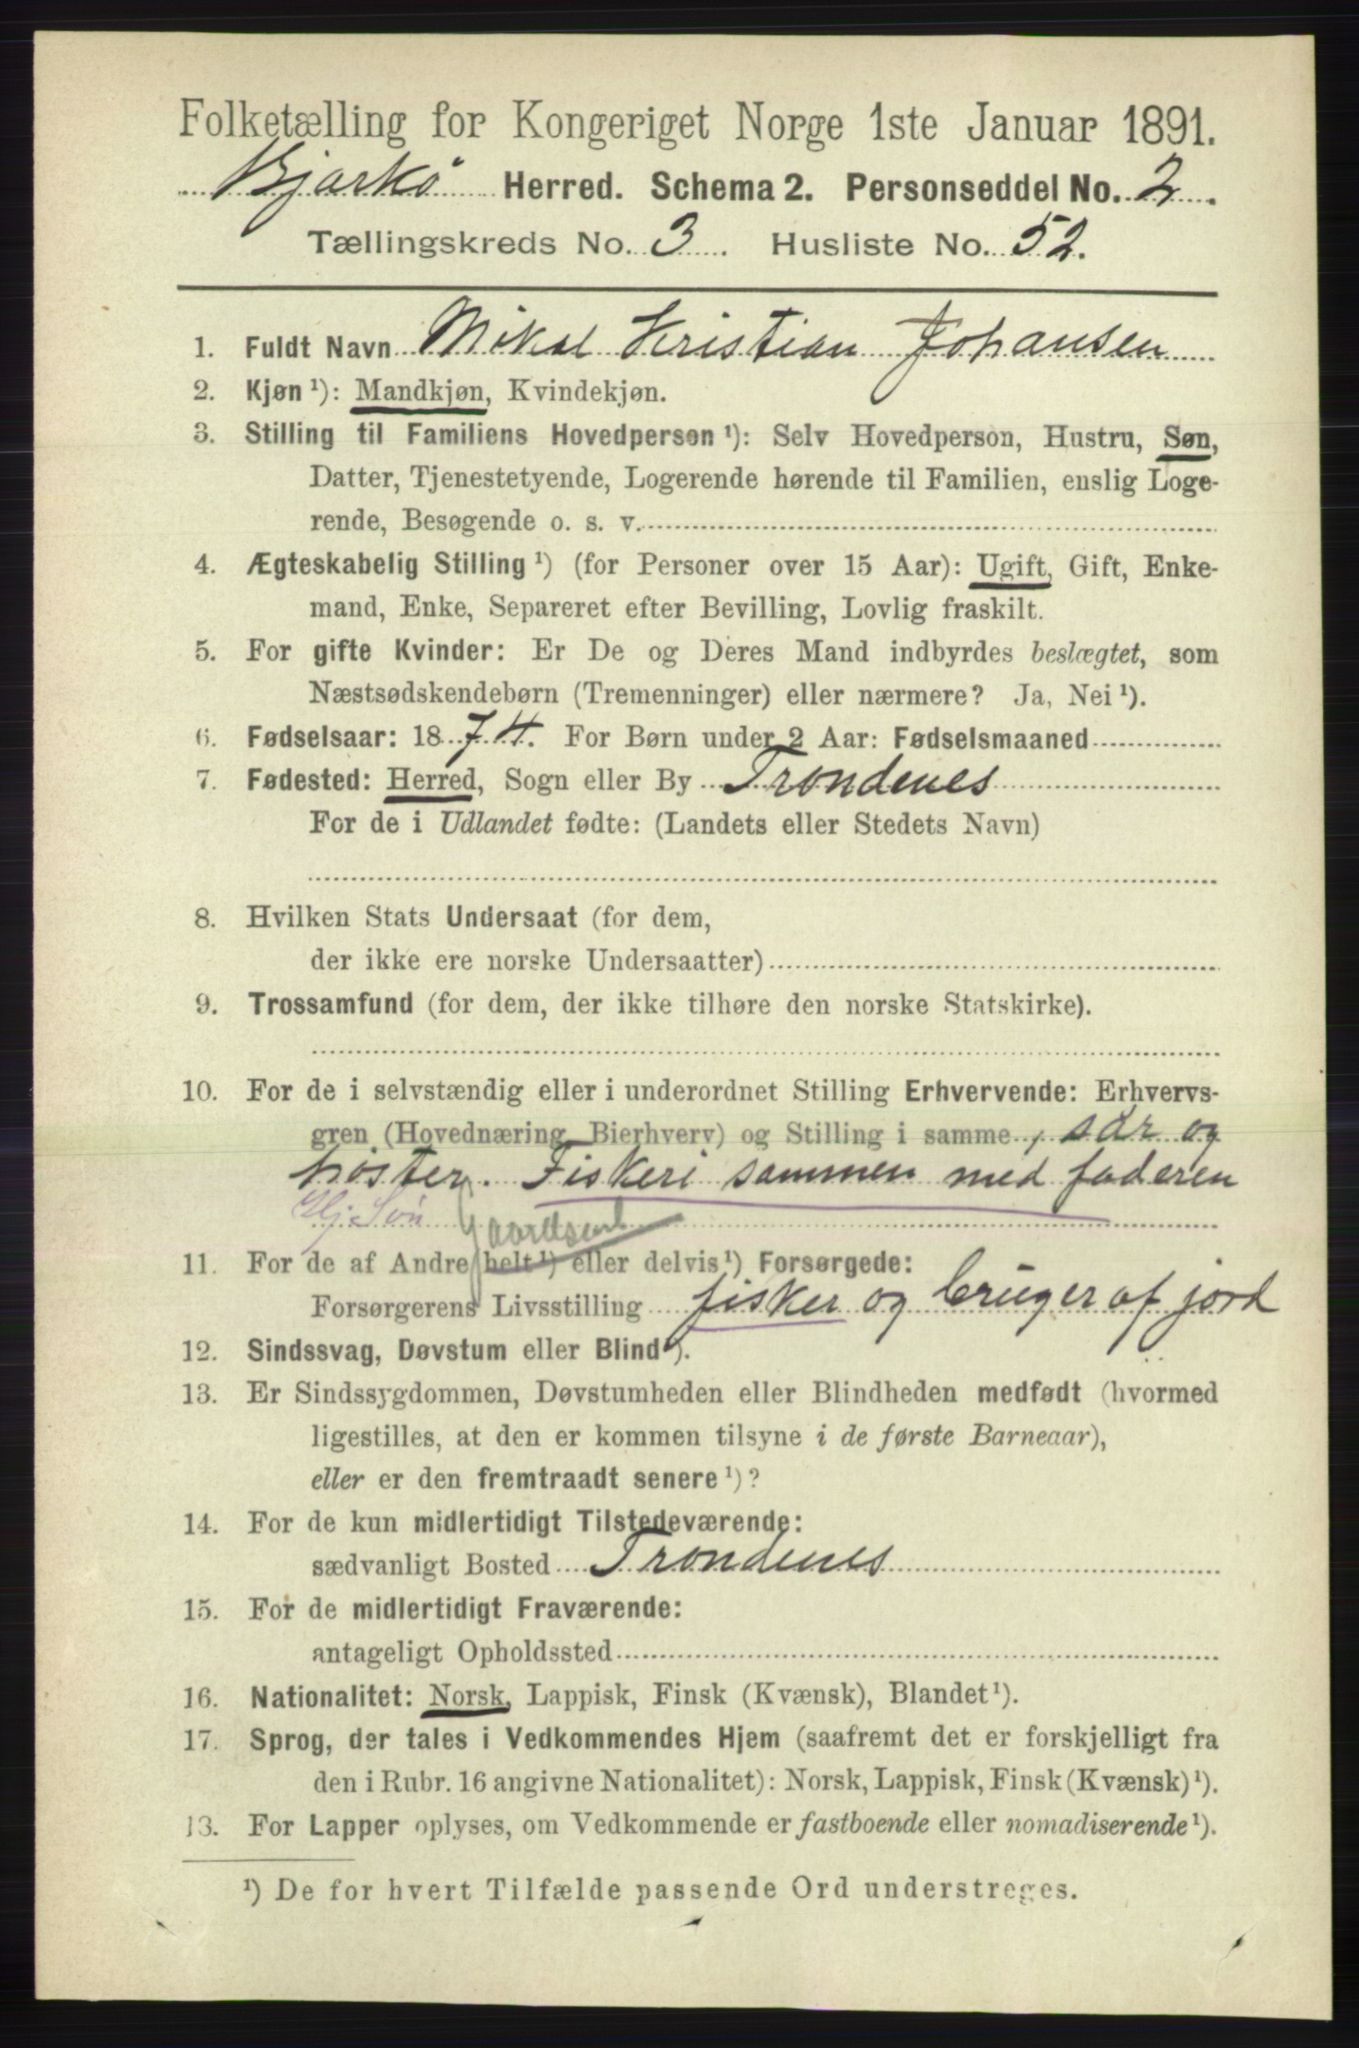 Folketælling for Kongeriget Norge 1ste Januar 1891.
Bjarkø Herred. Schema 2. Personseddel No. 2.
Tællingskreds No. 3. Husliste No. 52.
1. Fuldt Navn Mikal Kristian Johansen
2. Kjøn ¹): Mandkjøn, Kvindekjøn.
3. Stilling til Familiens Hovedperson ¹): Selv Hovedperson, Hustru, Søn,
Datter, Tjenestetyende, Logerende hørende til Familien, enslig Loge-
rende, Besøgende o. s. v.
4. Ægteskabelig Stilling ¹) (for Personer over 15 Aar): Ugift, Gift, Enke-
mand, Enke, Separeret efter Bevilling, Lovlig fraskilt.
5. For gifte Kvinder: Er De og Deres Mand indbyrdes beslægtet, som
Næstsødskendebørn (Tremenninger) eller nærmere? Ja, Nei ¹).
6. Fødselsaar: 1874. For Børn under 2 Aar: Fødselsmaaned
7. Fødested: Herred, Sogn eller By Trondenes
For de i Udlandet fødte: (Landets eller Stedets Navn)
8. Hvilken Stats Undersaat (for dem,
der ikke ere norske Undersaatter)
9. Trossamfund (for dem, der ikke tilhøre den norske Statskirke).
10. For de i selvstændig eller i underordnet Stilling Erhvervende: Erhvervs-
gren (Hovednæring, Bierhverv) og Stilling i samme, sår og
høster. Fiskeri sammen med faderen
Hj. Søn Gaardbrul
11. For de af Andre helt ¹) eller delvis ¹) Forsørgede:
Forsørgerens Livsstilling fisker og bruger af jord
12. Sindssvag, Døvstum eller Blind ¹).
13. Er Sindssygdommen, Døvstumheden eller Blindheden medfødt (hvormed
ligestilles, at den er kommen tilsyne i de første Barneaar),
eller er den fremtraadt senere ¹)?
14. For de kun midlertidigt Tilstedeværende:
sædvanligt Bosted Trondenes
15. For de midlertidigt Fraværende:
antageligt Opholdssted
16. Nationalitet: Norsk, Lappisk, Finsk (Kvænsk), Blandet ¹).
17. Sprog, der tales i Vedkommendes Hjem (saafremt det er forskjelligt fra
den i Rubr. 16 angivne Nationalitet): Norsk, Lappisk, Finsk (Kvænsk) ¹).
13. For Lapper oplyses, om Vedkommende er fastboende eller nomadiserende ¹).
¹) De for hvert Tilfælde passende Ord understreges.